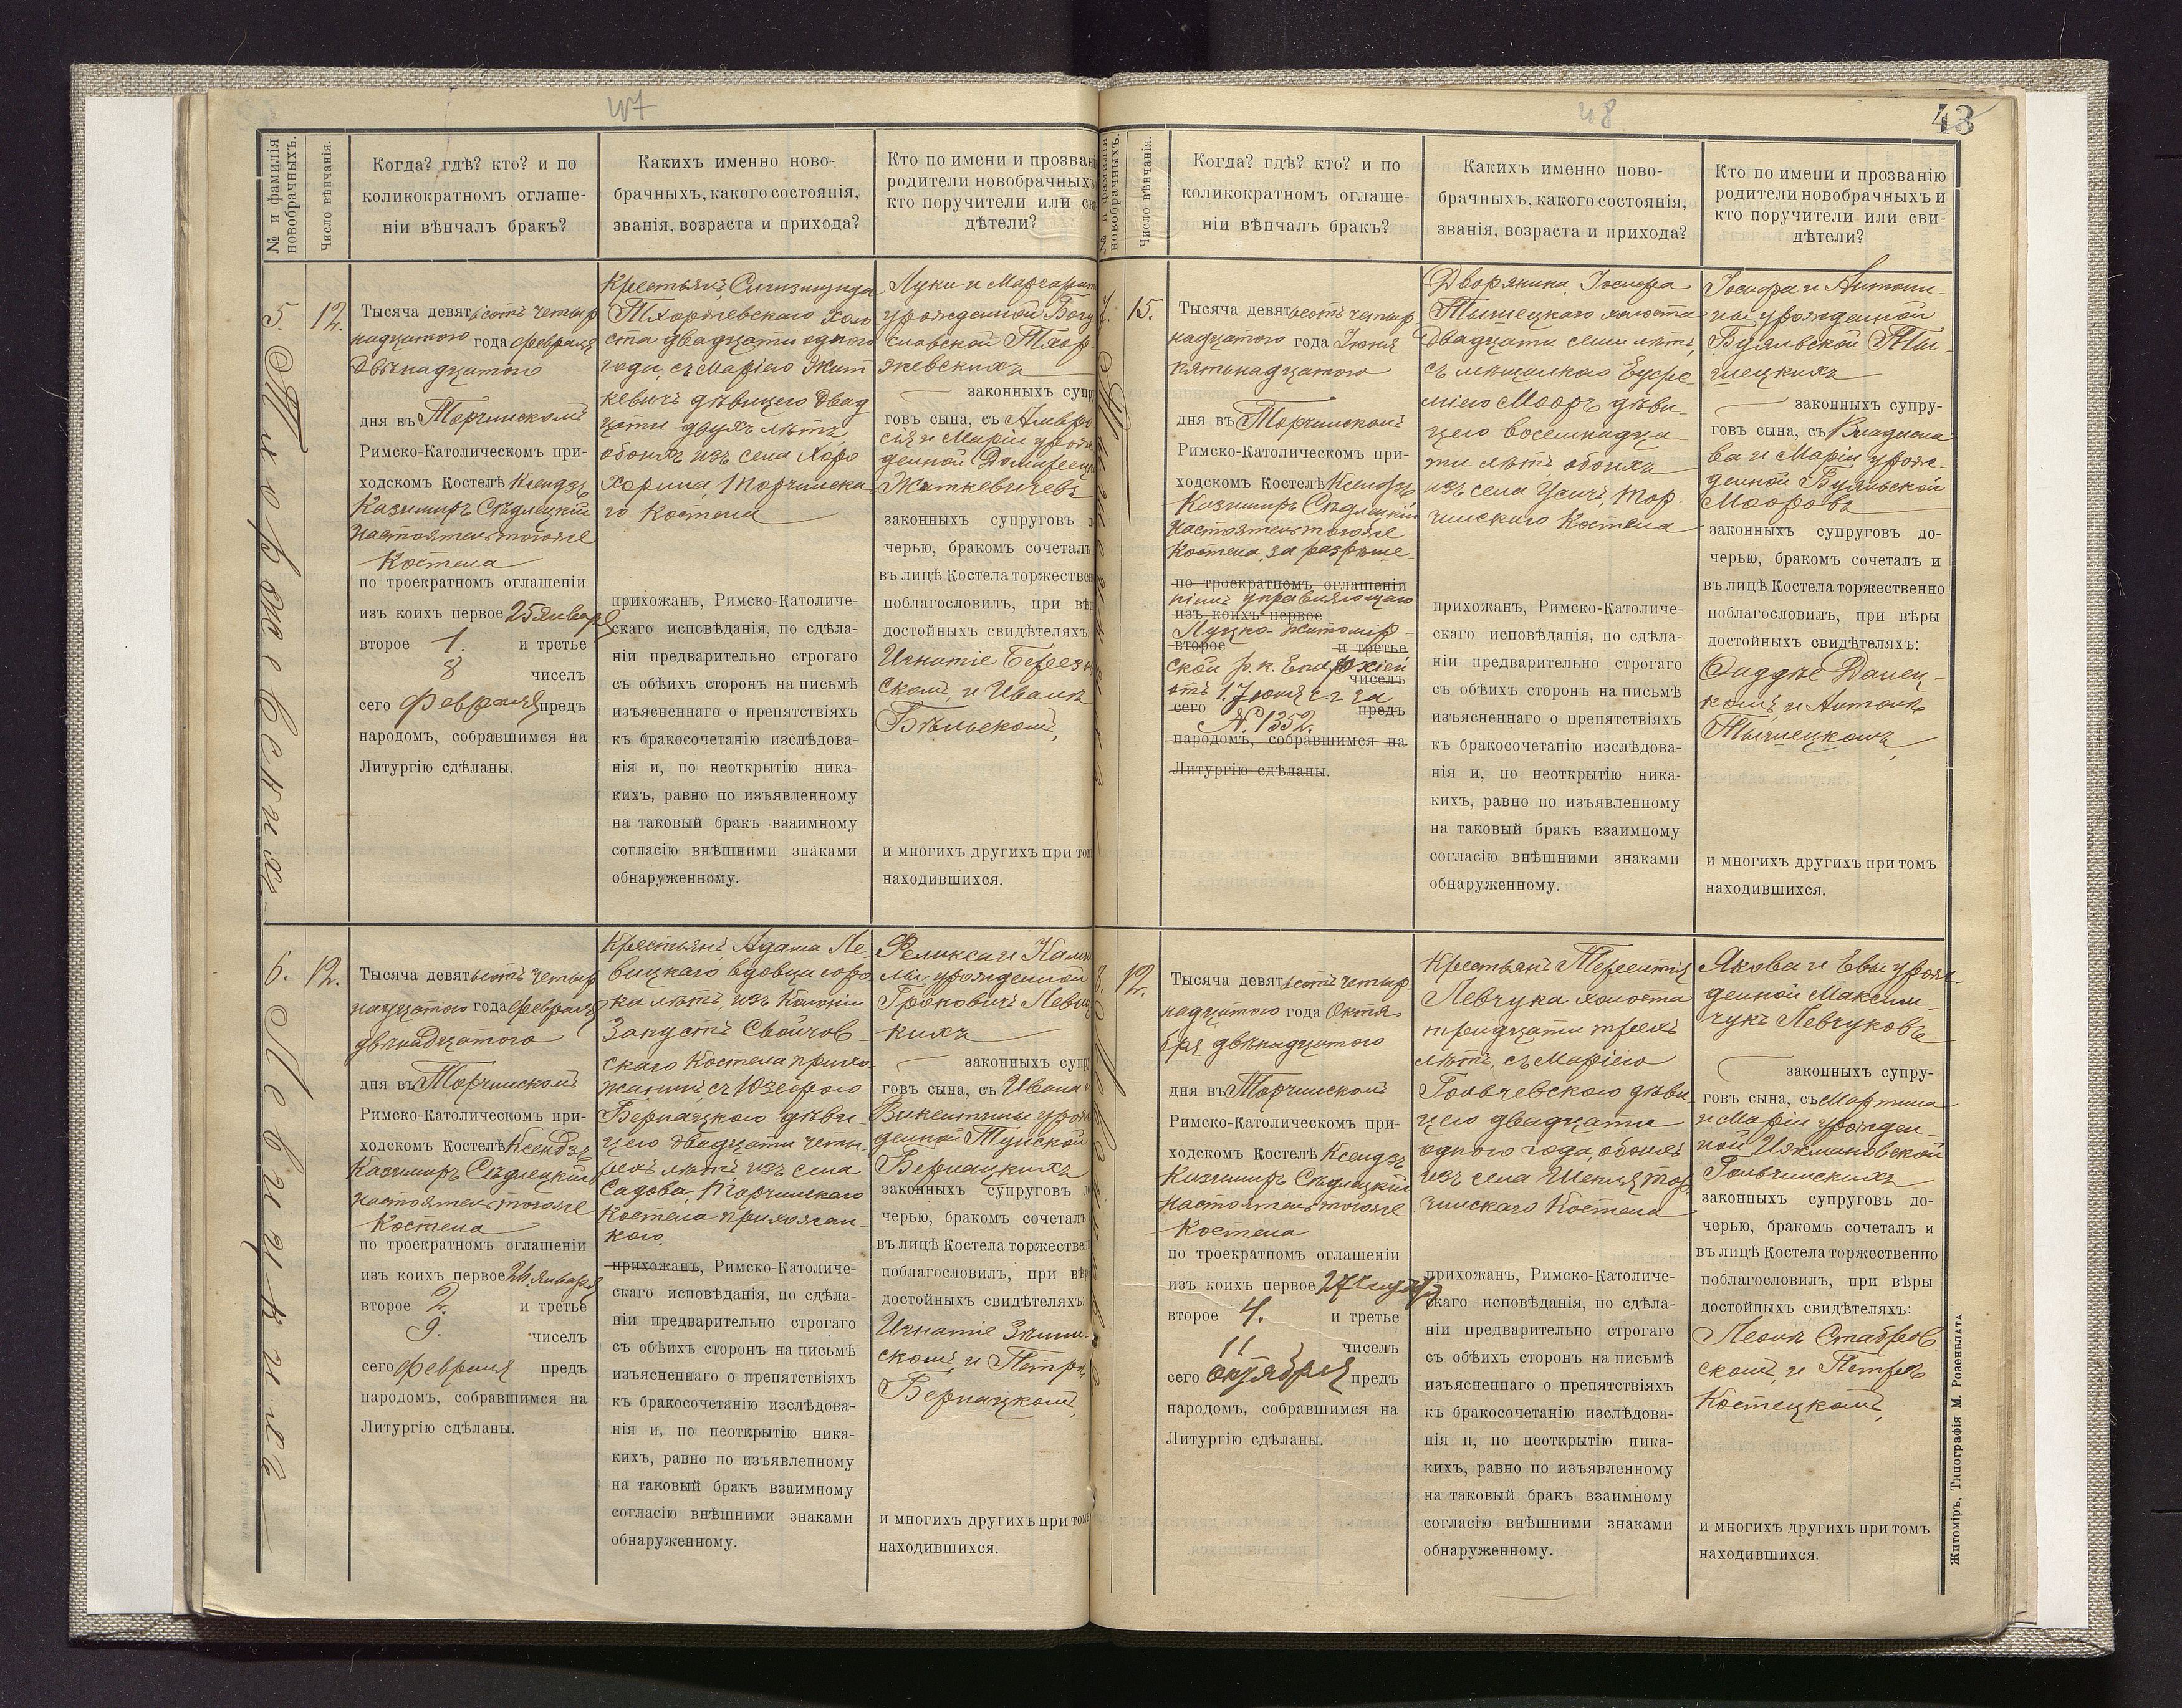 47
№ и фамилія новобрачныхъ.
Число вѣнчанія.
Когда? гдѣ? кто? и по
коликократномъ оглаше-
ніи вѣнчалъ бракъ?
Какихъ именно ново-
брачныхъ, какого состоянія,
званія, возраста и прихода?
Кто по имени и прозвані
родители новобрачныхъ
кто поручители или св
дѣтели?
5.
Тхоржевскихъ
12.
Тысяча девятьсотъ четыр
надцатого года февраля
двѣнадцатого
дня въ Торчинскомъ
Римско-Католическомъ при-
ходскомъ Костелѣ Ксендзъ
Казимиръ Сѣдлецкій
настоятель тогоже
Костела
по троекратномъ оглашеніи
изъ коихъ первое 25 января
второе 1. и третье
8 чиселъ
сего февраля предъ
народомъ, собравшимся на
Литургію сдѣланы.
Крестьянъ, Сигизмунда
Тхоржевскаго холо
ста двадцати одного
года, съ Маріею Жит
кевичъ дѣвицею двад
цати двухъ лѣтъ,
обоихъ изъ села Хоро
хорина, Торчинска
го Костела
прихожанъ, Римско-Католиче-
скаго исповѣданія, по сдѣла-
ніи предварительно строгаго
съ обѣихъ сторонъ на письмѣ
изъясненнаго о препятствіяхъ
къ бракосочетанію изслѣдова-
нія и, по неоткрытію ника-
кихъ, равно по изъявленному
на таковый бракъ взаимному
согласію внѣшними знаками
обнаруженному.
Луки и Маргарит
урожденной Богу
славской Тхор
жевскихъ
законныхъ супру
говъ сына, съ Амвро
сія и Маріи урож
денной
Житкевичевъ
законныхъ супруговъ д
черью, бракомъ сочеталъ
въ лицѣ Костела торжествен
поблагословилъ, при вѣр
достойныхъ свидѣтеляхъ:
Игнатіе Березов
скомъ, и Иванѣ
Бѣльскомъ,
и многихъ другихъ при том
находившихся.
6.
Левицкихъ
12.
Тысяча девятьсотъ четыр
надцатого года февраля
двѣнадцатого
дня въ Торчинскомъ
Римско-Католическомъ при-
ходскомъ Костелѣ Ксендзъ
Казимиръ Сѣдлецкій
настоятель тогоже
Костела
по троекратномъ оглашеніи
изъ коихъ первое 26 января
второе 2. и третье
9. чиселъ
сего февраля предъ
народомъ, собравшимся на
Литургію сдѣланы.
Крестьянъ, Адама Ле-
вицкаго вдовца соро
ка лѣтъ, изъ Колоніи
Запустъ Свойчов-
скаго Костела прихо-
жанинъ съ Юзефою
Бернацкою дѣви-
цею двадцати четы-
рехъ лѣтъ изъ села
Садова, Торчинскаго
Костела прихожан-
кою,
прихожанъ, Римско-Католиче-
скаго исповѣданія, по сдѣла-
ніи предварительно строгаго
съ обѣихъ сторонъ на письмѣ
изъясненнаго о препятствіяхъ
къ бракосочетанію изслѣдова-
нія и, по неоткрытію ника-
кихъ, равно по изъявленному
на таковый бракъ взаимному
согласію внѣшними знаками
обнаруженному.
Феликса и
урожденной
Левиц
кихъ
законныхъ супру
говъ сына, съ Ивана и
Викентины урож
денной Туйской
Бернацкихъ
законныхъ супруговъ д
черью, бракомъ сочеталъ
въ лицѣ Костела торжествен
поблагословилъ, при вѣр
достойныхъ свидѣтеляхъ:
Игнатіе
скомъ и Петрѣ
Бернацкомъ,
и многихъ другихъ при том
находившихся.
48
43
№ и фамилія новобрачныхъ.
Число вѣнчанія.
Когда? гдѣ? кто? и по
коликократномъ оглаше-
ніи вѣнчалъ бракъ?
Какихъ именно ново-
брачныхъ, какого состоянія,
званія, возраста и прихода?
Кто по имени и прозванію
родители новобрачныхъ и
кто поручители или сви-
дѣтели?
15.
Тысяча девятьсотъ четыр
надцатого года Іюня
пятьнадцатого
дня въ Торчинскомъ
Римско-Католическомъ при-
ходскомъ Костелѣ Ксендзъ
Казимиръ Сѣдлецкій
настоятель тогоже
Костела, за разрѣше-
по троекратномъ оглашеніи
ніемъ управляющаго
изъ коихъ первое
Луцко-Житомір-
второе и третье
ской р. к. Епархіей
чиселъ
отъ 1 Іюня с. г. за
сего предъ
№ 1352.
народомъ, собравшимся на
Литургію сдѣланы.
Дворянина, Іосифа
Тышецкаго холоста
двадцати семи лѣтъ,
съ мѣщанкою Евфе
міею Мооръ дѣви-
цею восемнадца-
ти лѣтъ обоихъ
изъ села Усичъ, Тор-
чинскаго Костела
прихожанъ, Римско-Католиче-
скаго исповѣданія, по сдѣла-
ніи предварительно строгаго
съ обѣихъ сторонъ на письмѣ
изъясненнаго о препятствіяхъ
къ бракосочетанію изслѣдова-
нія и, по неоткрытію ника-
кихъ, равно по изъявленному
на таковый бракъ взаимному
согласію внѣшними знаками
обнаруженному.
Іосифа и Антони-
ны урожденной
Буяльской Ты-
шецкихъ
законныхъ супру-
говъ сына, съ Владисла
ва и Маріи урож-
денной Буяльской
Мооровъ
законныхъ супруговъ до-
черью, бракомъ сочеталъ и
въ лицѣ Костела торжественно
поблагословилъ, при вѣры
достойныхъ свидѣтеляхъ:
Данец-
комъ, и Антонѣ
Тышецкомъ,
и многихъ другихъ при томъ
находившихся.
8.
12.
Тысяча девятьсотъ четыр
надцатого года Октя
бря двѣнадцатого
дня въ Торчинскомъ
Римско-Католическомъ при-
ходскомъ Костелѣ Ксендзъ
Казимиръ Сѣдлецкій
настоятель тогоже
Костела
по троекратномъ оглашеніи
изъ коихъ первое 27
второе 4. и третье
11 чиселъ
сего октября предъ
народомъ, собравшимся на
Литургію сдѣланы.
Крестьянъ Терентія
Левчука холоста
тридцати трехъ
лѣтъ, съ Маріею
Гольчевскою дѣви
цею двадцати
одного года, обоихъ
изъ села Шельвъ Тор
чинскаго Костела
прихожанъ, Римско-Католиче-
скаго исповѣданія, по сдѣла-
ніи предварительно строгаго
съ обѣихъ сторонъ на письмѣ
изъясненнаго о препятствіяхъ
къ бракосочетанію изслѣдова-
нія и, по неоткрытію ника-
кихъ, равно по изъявленному
на таковый бракъ взаимному
согласію внѣшними знаками
обнаруженному.
Якова и Евы урож-
денной Максим-
чукъ Левчуковъ
законныхъ супру-
говъ сына, съ Мартина
и Маріи урожден-
ной
законныхъ супруговъ до-
черью, бракомъ сочеталъ и
въ лицѣ Костела торжественно
поблагословилъ, при вѣры
достойныхъ свидѣтеляхъ:
Леонѣ Ставров
скомъ, и Петрѣ
Костецкомъ,
и многихъ другихъ при томъ
находившихся.
Житоміръ, Типографія М. Розенблата